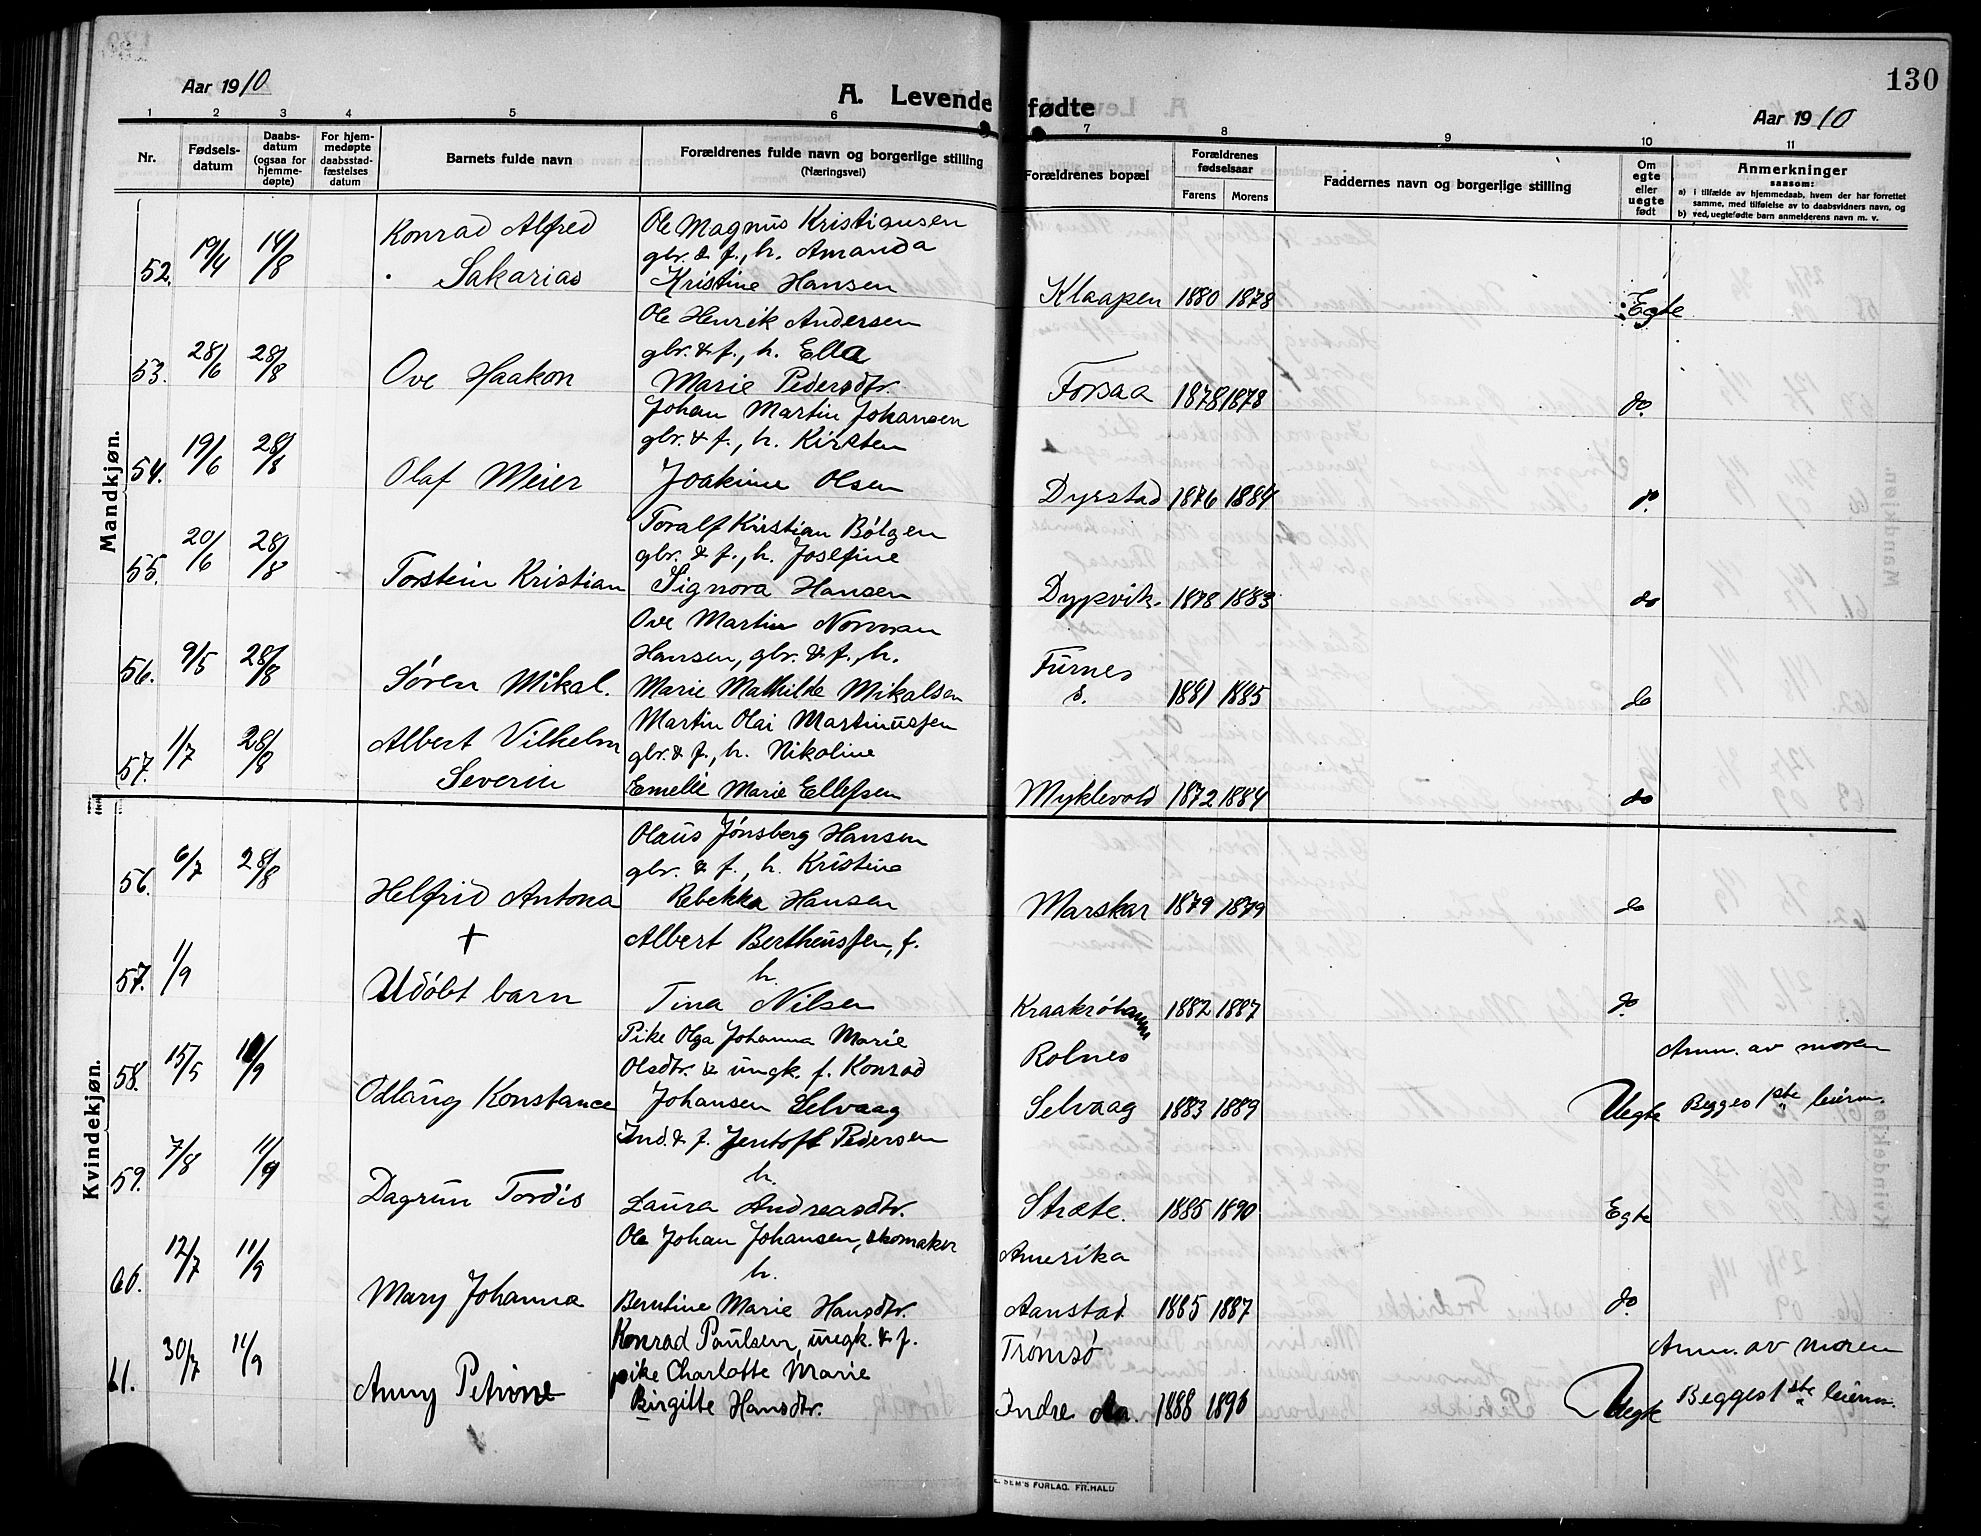 130
Aar 1910
A. Levende fødte
Aar 1910
1 2 3 4 5 6 7 8 9 10 11
Nr.
Fødsels-
datum
Daabs-
datum
(ogsaa for
hjemme-
døpte)
For hjem-
medøpte
daabsstad-
fæstelses
datum
Barnets fulde navn
Forældrenes fulde navn og borgerlige stilling
(Næringsvei)
Forældrenes bopæl
Forældrenes
fødselsaar
Farens Morens
Faddernes navn og borgerlige stilling
Om
egte
eller
uegte
født
Anmerkninger
saasom:
a) i tilfælde av hjemmedaab, hvem der har forrettet
samme, med tilføielse av to daabsvidners navn, og
b) ved uegtefødte barn anmelderens navn m. v.
Mandkjøn.
52. 19/4 14/8 Konrad Alfred
Sakarias
Ole Magnus Kristiansen
gbr. & f., h. Amanda
Kristine Hansen
Klaapen 1880 1878 Egte
53. 28/6 28/8 Ove Haakon
Ole Henrik Andersen
gbr. & f., h. Ella
Marie Pedersdtr.
Forsaa 1878 1878 do.
54. 19/6 28/8 Olaf Meier
Johan Martin Johansen
gbr. & f., h. Kirsten
Joakime Olsen
Dyrstad 1876 1884 do.
55. 20/6 28/8 Torstein Kristian
Toralf Kristian Bötgen
gbr. & f., h. Josefine
Signora Hansen
Dypvik. 1878 1883 do
56. 9/5 28/8 Søren Mikal.
Ove Martin Norman
Hansen, gbr. & f., h.
Marie Mathilde Mikalsen
Furnes
s. 1881 1885 do
57. 1/7 28/8 Albert Vilhelm
Severin
Martin Olai Martinussen
gbr. & f., h. Nikoline
Emelie Marie Ellefsen
Myklevold 1872 1884 do
Kvindekjøn.
56. 6/7 28/8 Helfrid Antona
Olaus Jønsberg Hansen
gbr. & f., h. Kristina
Rebekka Hansen
Marskar 1879 1879 do
57. 1/9 +
Udöbt barn
Albert Bertheussen, f.
h.
Tina Nilsen
Kraakröhamn 1882 1887 do.
58. 15/5 11/9 Odlaug Konstance
Pike Olga Johanna Marie
Olsdtr. & ungk. f. Konrad
Johansen Selvaag
Rolnes
Selvaag 1883 1889 Uegte
Anm. av moren
Begges 1ste leierm.
59. 7/8 11/9 Dagrun Tordis
Ind. & f. Jentoft Pedersen
h.
Laura Andreasdtr.
Stræte. 1885 1890 Egte
60. 12/7 11/9 Mary Johanna
Ole Johan Johansen, skomaker
h.
Berntine Marie Hansdtr.
Amerika
Aanstad 1885 1887 do.
61. 30/7 11/9 Anny Petrine
Konrad Paulsen, ungk. & f.
pike Charlotte Marie
Birgitte Hansdtr.
Tromsø
Indre Aa. 1888 1890 Uegte
Anm. av moren
Begges 1ste leierm.
SEM'S FORLAG. FR.HALD